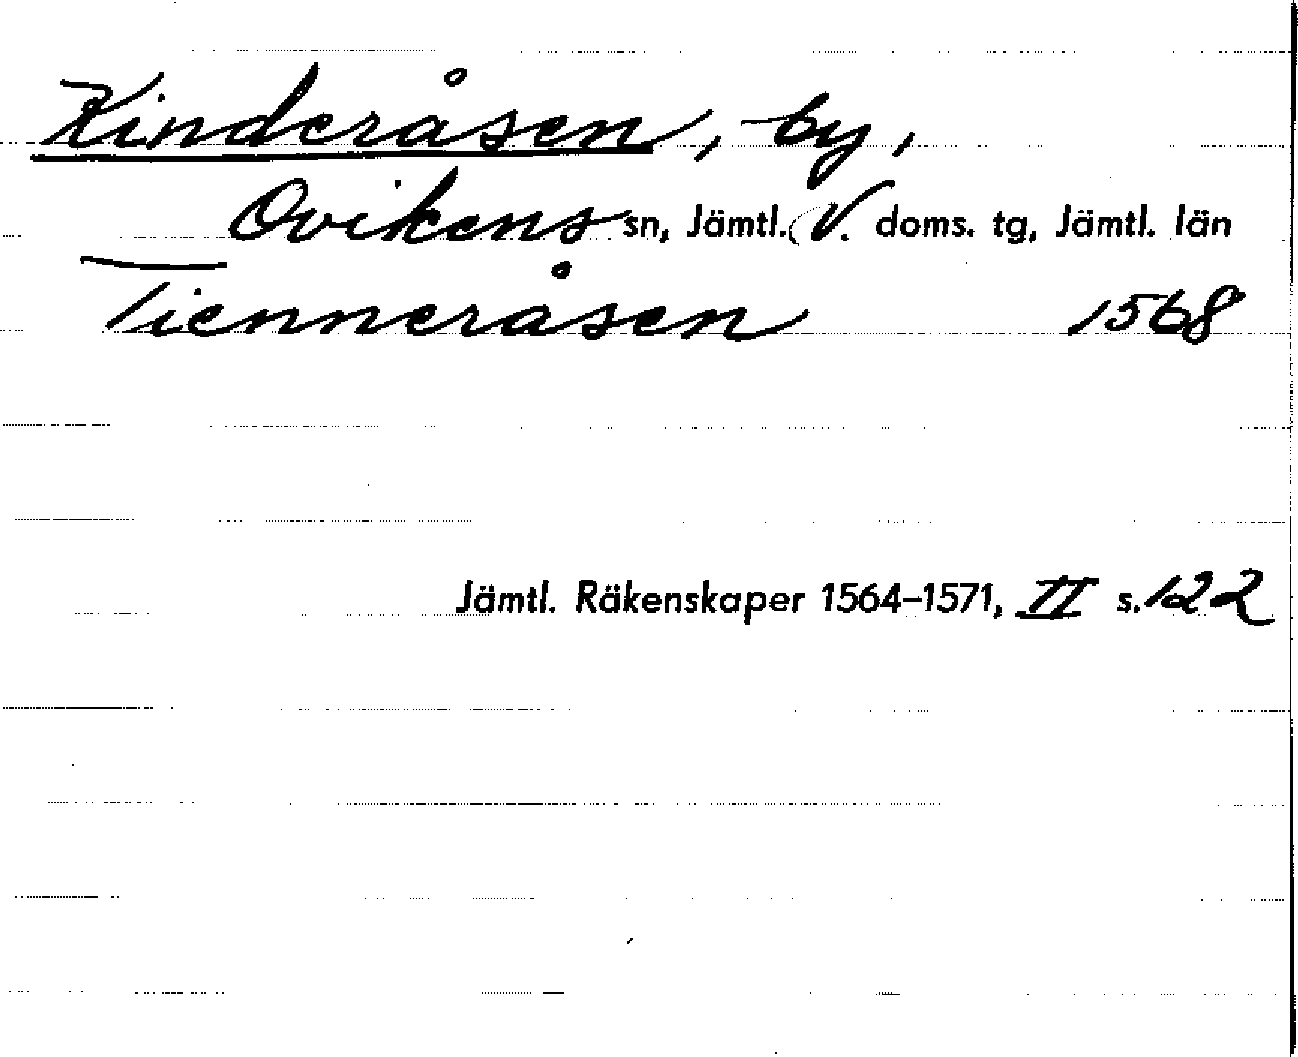 Kinderåsen, by,
Ovikens sn, Jämtl. V. doms. tg, Jämtl. län
Tienneråsen 1568
Jämtl. Räkenskaper 1564–1571, II s. 122